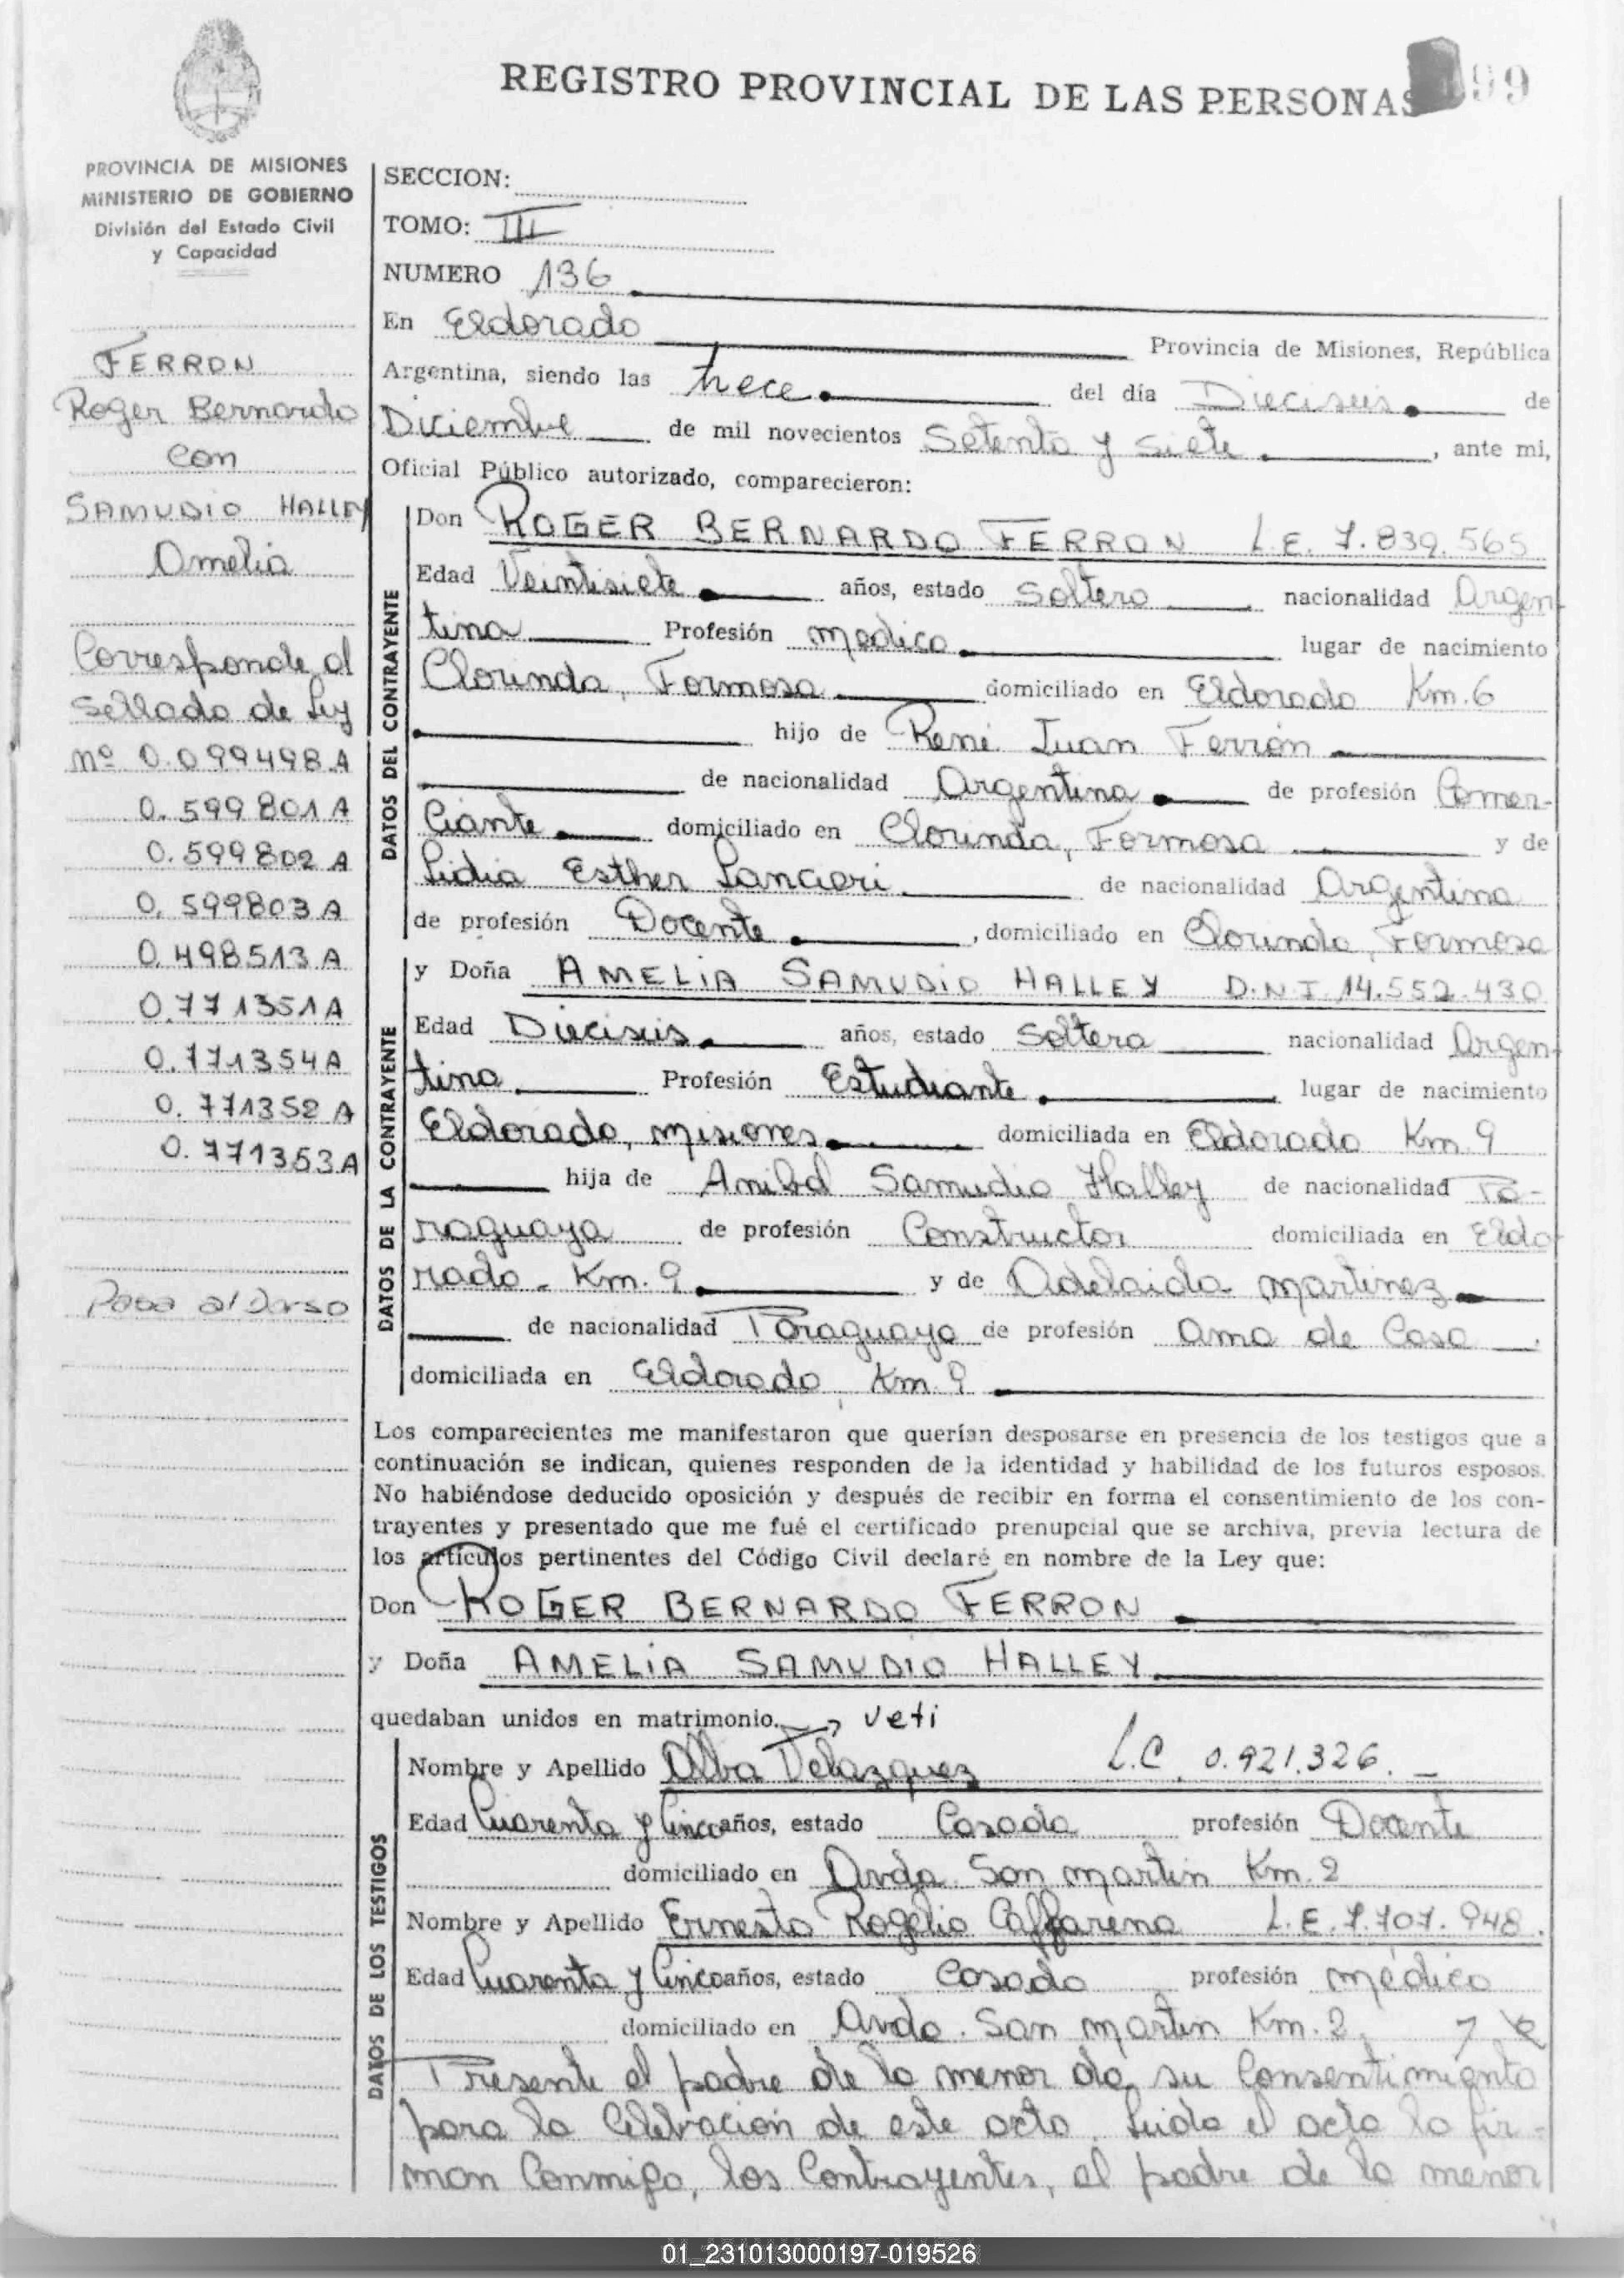 REGISTRO PROVINCIAL DE LAS PERSONAS 99
PROVINCIA DE MISIONES
MINISTERIO DE GOBIERNO
División del Estado Civil
y Capacidad
FERRON
Roger Bernardo
con
SAMUDIO HALLEY
Amelia
Corresponde al
Sellado de Ley
nº 0.099498 A
0.599801 A
0.599802 A
0.599803 A
0.498513 A
0.771351 A
0.771354 A
0.771352 A
0.771353 A
Pasa al Dorso
SECCION:
TOMO: III
NUMERO 136
En Eldorado Provincia de Misiones, República
Argentina, siendo las trece del día Dieciseis de
Diciembre de mil novecientos Setenta y siete, ante mi,
Oficial Público autorizado, comparecieron:
DATOS DEL CONTRAYENTE
Don ROGER BERNARDO FERRON L.E. 7.839.565
Edad Veintisiete años, estado Soltero nacionalidad Argen-
tina Profesión medico lugar de nacimiento
Clorinda, Formosa domiciliado en Eldorado Km.6
hijo de René Juan Ferrón
de nacionalidad Argentina de profesión Comer-
ciante domiciliado en Clorinda, Formosa y de
Lidia Esther Lancieri de nacionalidad Argentina
de profesión Docente, domiciliado en Clorinda, Formosa
DATOS DE LA CONTRAYENTE
y Doña AMELIA SAMUDIO HALLEY D.N.I. 14.552.430
Edad Dieciseis años, estado Soltera nacionalidad Argen-
tina Profesión Estudiante lugar de nacimiento
Eldorado, misiones domiciliada en Eldorado Km.9
hija de Anibal Samudio Halley de nacionalidad Pa-
raguaya de profesión Constructor domiciliada en Eldo-
rado - Km. 9 y de Adelaida martinez
de nacionalidad Paraguaya de profesión Ama de Casa
domiciliada en Eldorado, Km. 9
Los comparecientes me manifestaron que querían desposarse en presencia de los testigos que a
continuación se indican, quienes responden de la identidad y habilidad de los futuros esposos.
No habiéndose deducido oposición y después de recibir en forma el consentimiento de los con-
trayentes y presentado que me fué el certificado prenupcial que se archiva, previa lectura de
los artículos pertinentes del Código Civil declaré en nombre de la Ley que:
Don ROGER BERNARDO FERRON
y Doña AMELIA SAMUDIO HALLEY
quedaban unidos en matrimonio. veti
DATOS DE LOS TESTIGOS
Nombre y Apellido Alba Velazquez L.C. 0.921.326.
Edad Cuarenta y Cinco años, estado Casada profesión Docente
domiciliado en Avda. San martin Km. 2
Nombre y Apellido Ernesto Rogelio Caffarena L.E. 7.707.948.
Edad Cuarenta y Cinco años, estado Casado profesión médico
domiciliado en Avda. San martin Km. 2,
Presente el padre de la menor da su Consentimiento
para la Celebracion de este acto. Leida el acta la fir-
man Conmigo, los Contrayentes, el padre de la menor
01_231013000197-019526